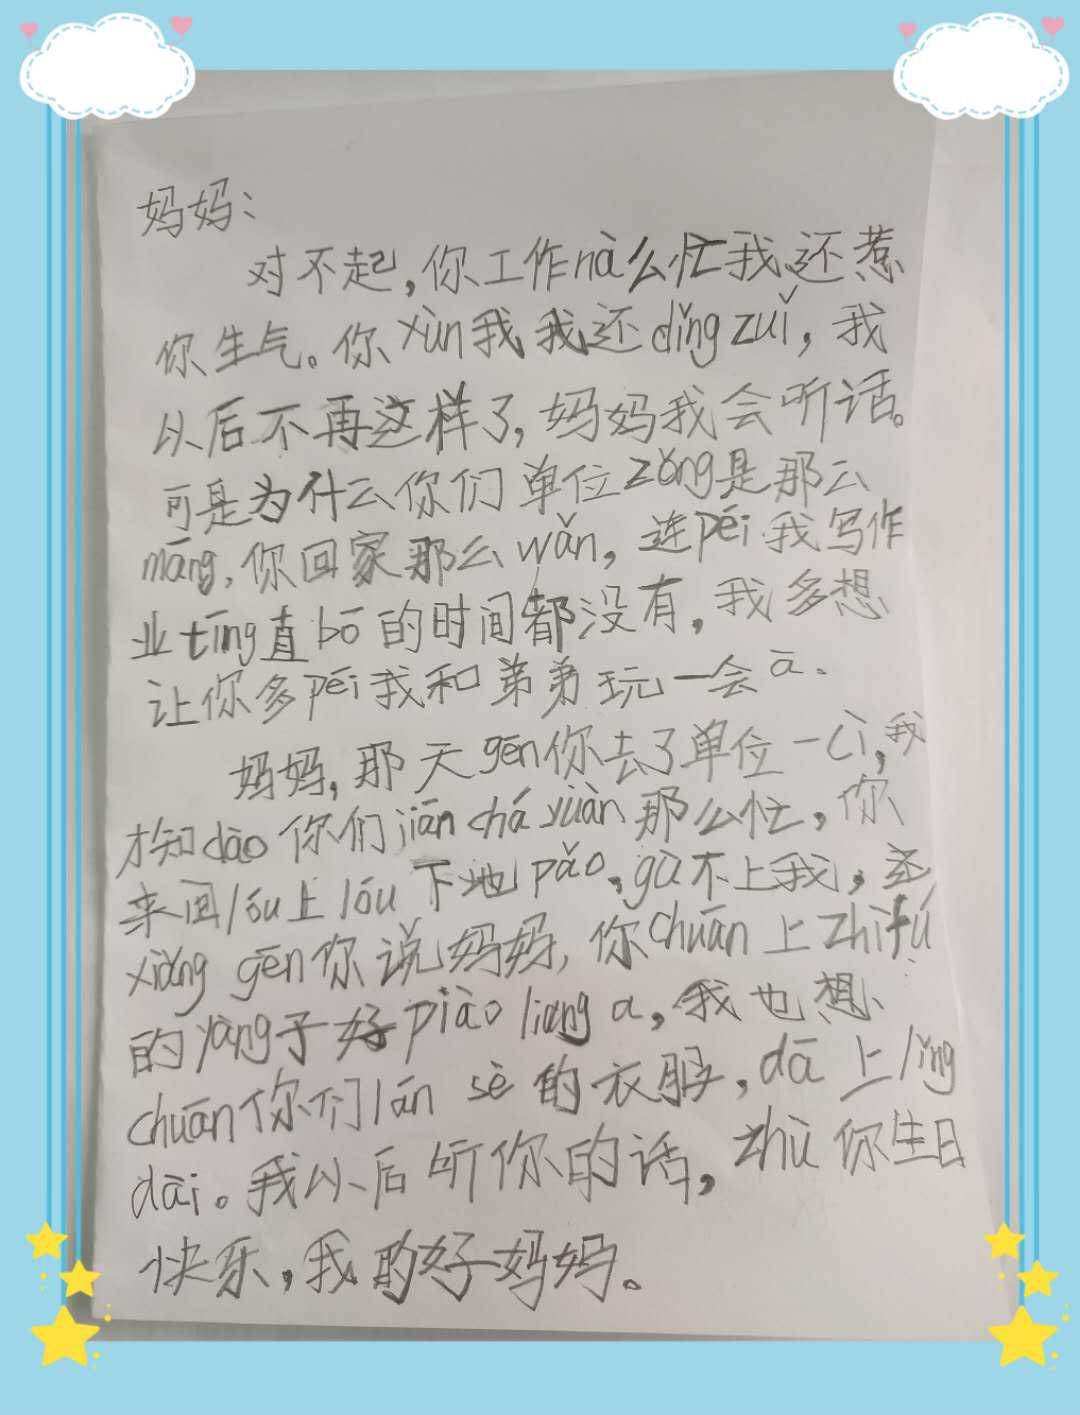 妈妈:
对不起,你工作nà么忙我还惹
你生气。你xùn我我还dǐng zuǐ,我
以后不再这样了,妈妈我会听话。
可是为什么你们单位zǒng是那么
máng,你回家那么wǎn,连péi我写作
业tīng直bō的时间都没有,我多想
让你多péi我和弟弟玩一会ā.
妈妈,那天gēn你去了单位一cì,我
才知dào你们jiǎn chá yuàn那么忙,你
来回lóu上lóu下地pǎo,gù不上我,还
xiǎng gēn你说妈妈,你chuān上zhì fú
的yàng子好piào liang a,我也想
chuān你们lán sè的衣服,dā上lǐng
dāi。我以后听你的话,zhù你生日
快乐,我的好妈妈。